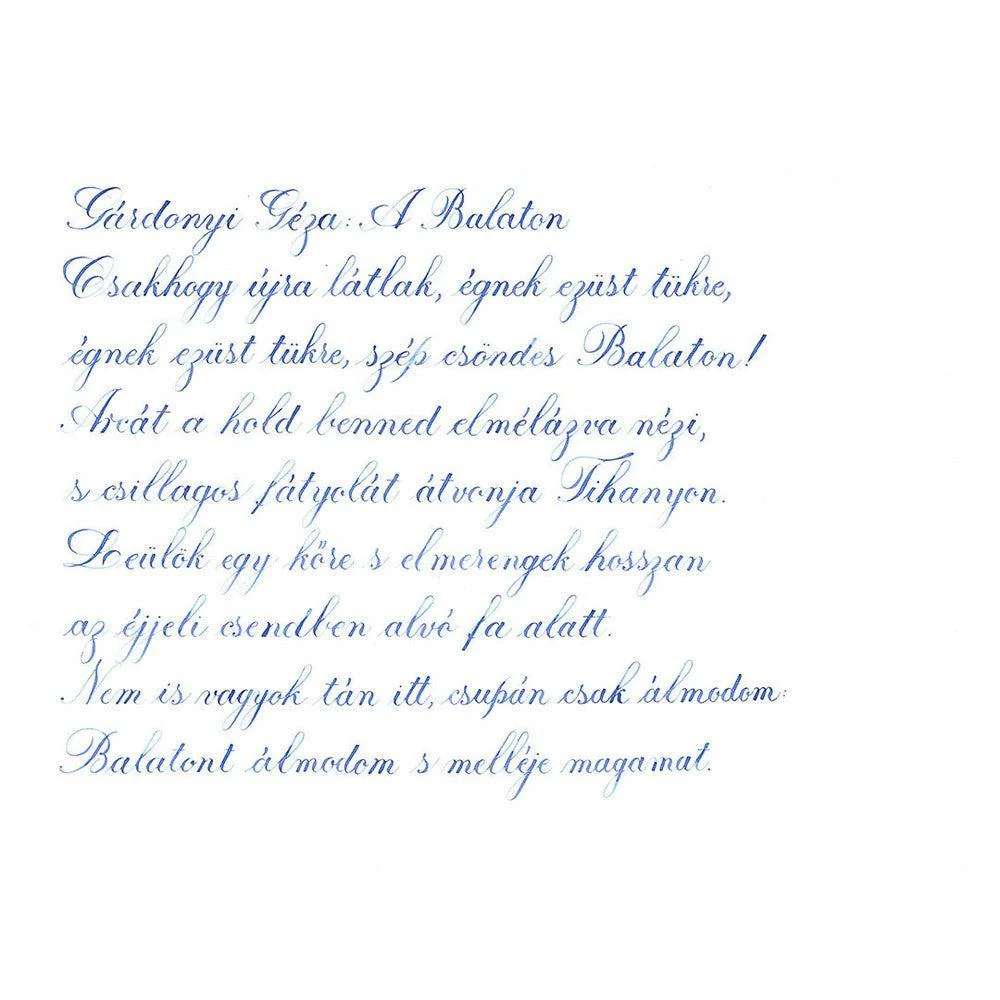 Gárdonyi Géza: A Balaton
Csakhogy újra látlak, égnek ezüst tükre,
égnek ezüst tükre, szép csöndes Balaton!
Arcát a hold benned elmélázva nézi,
s csillagos fátyolát átvonja Tihanyon.
Leülök egy kőre s elmerengek hosszan
az éjjeli csendben alvó fa alatt.
Nem is vagyok tán itt, csupán csak álmodom:
Balatont álmodom s melléje magamat.